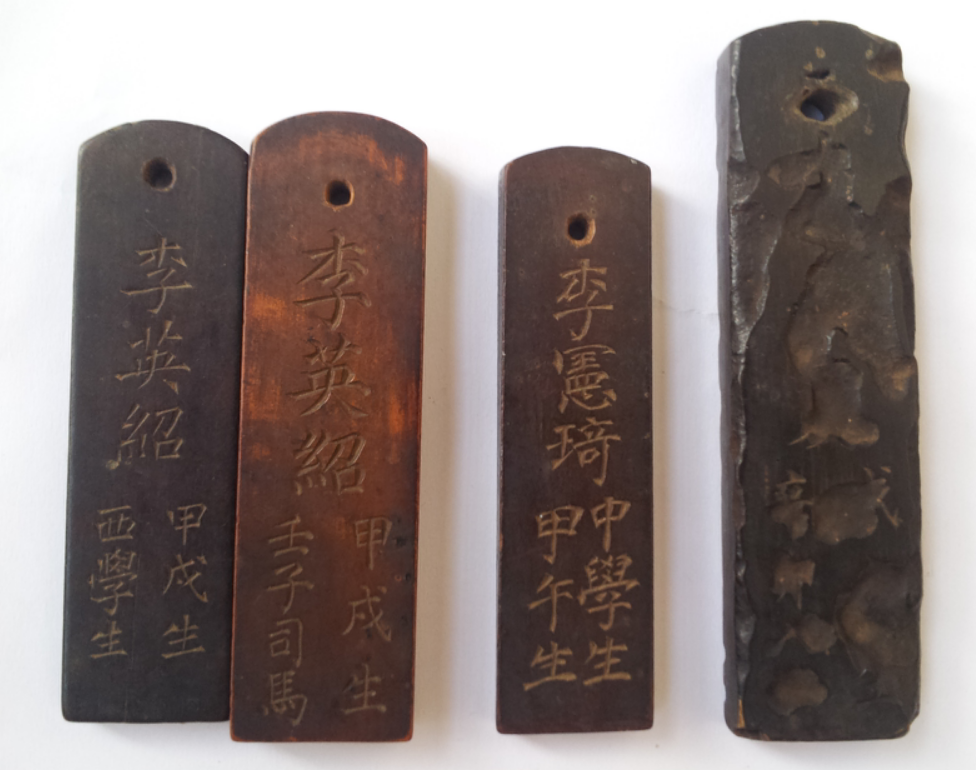 李英紹
甲戌生
西學生
李英紹
甲戌生
壬子司馬
李憲琦
中學生
甲午生